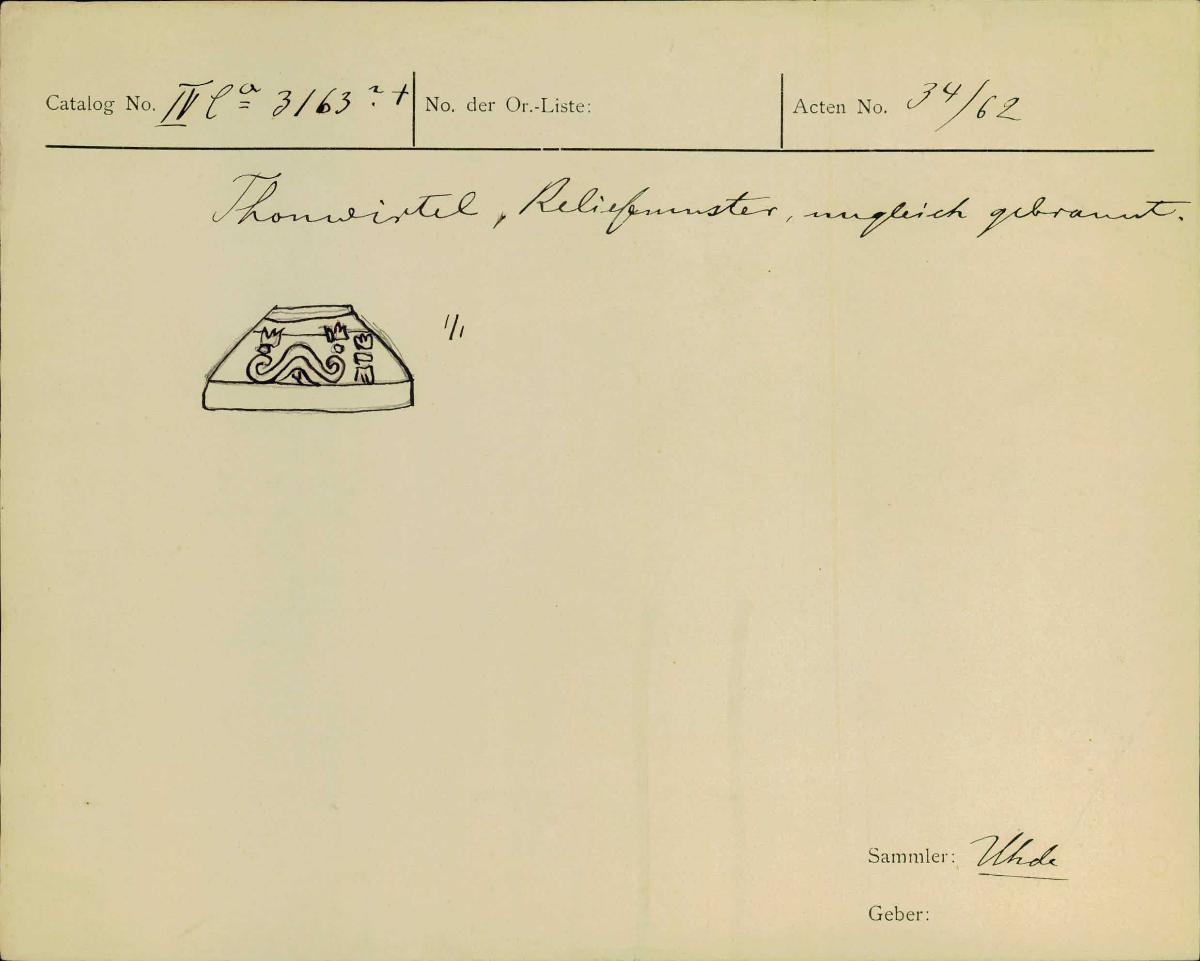 Catalog No. IV Ca 3163 ? + No. der Or.-Liste: Acten No. 34/62
Thonwirtel, Reliefmuster, ungleich gebrannt.
1/1
Sammler: Uhde
Geber: